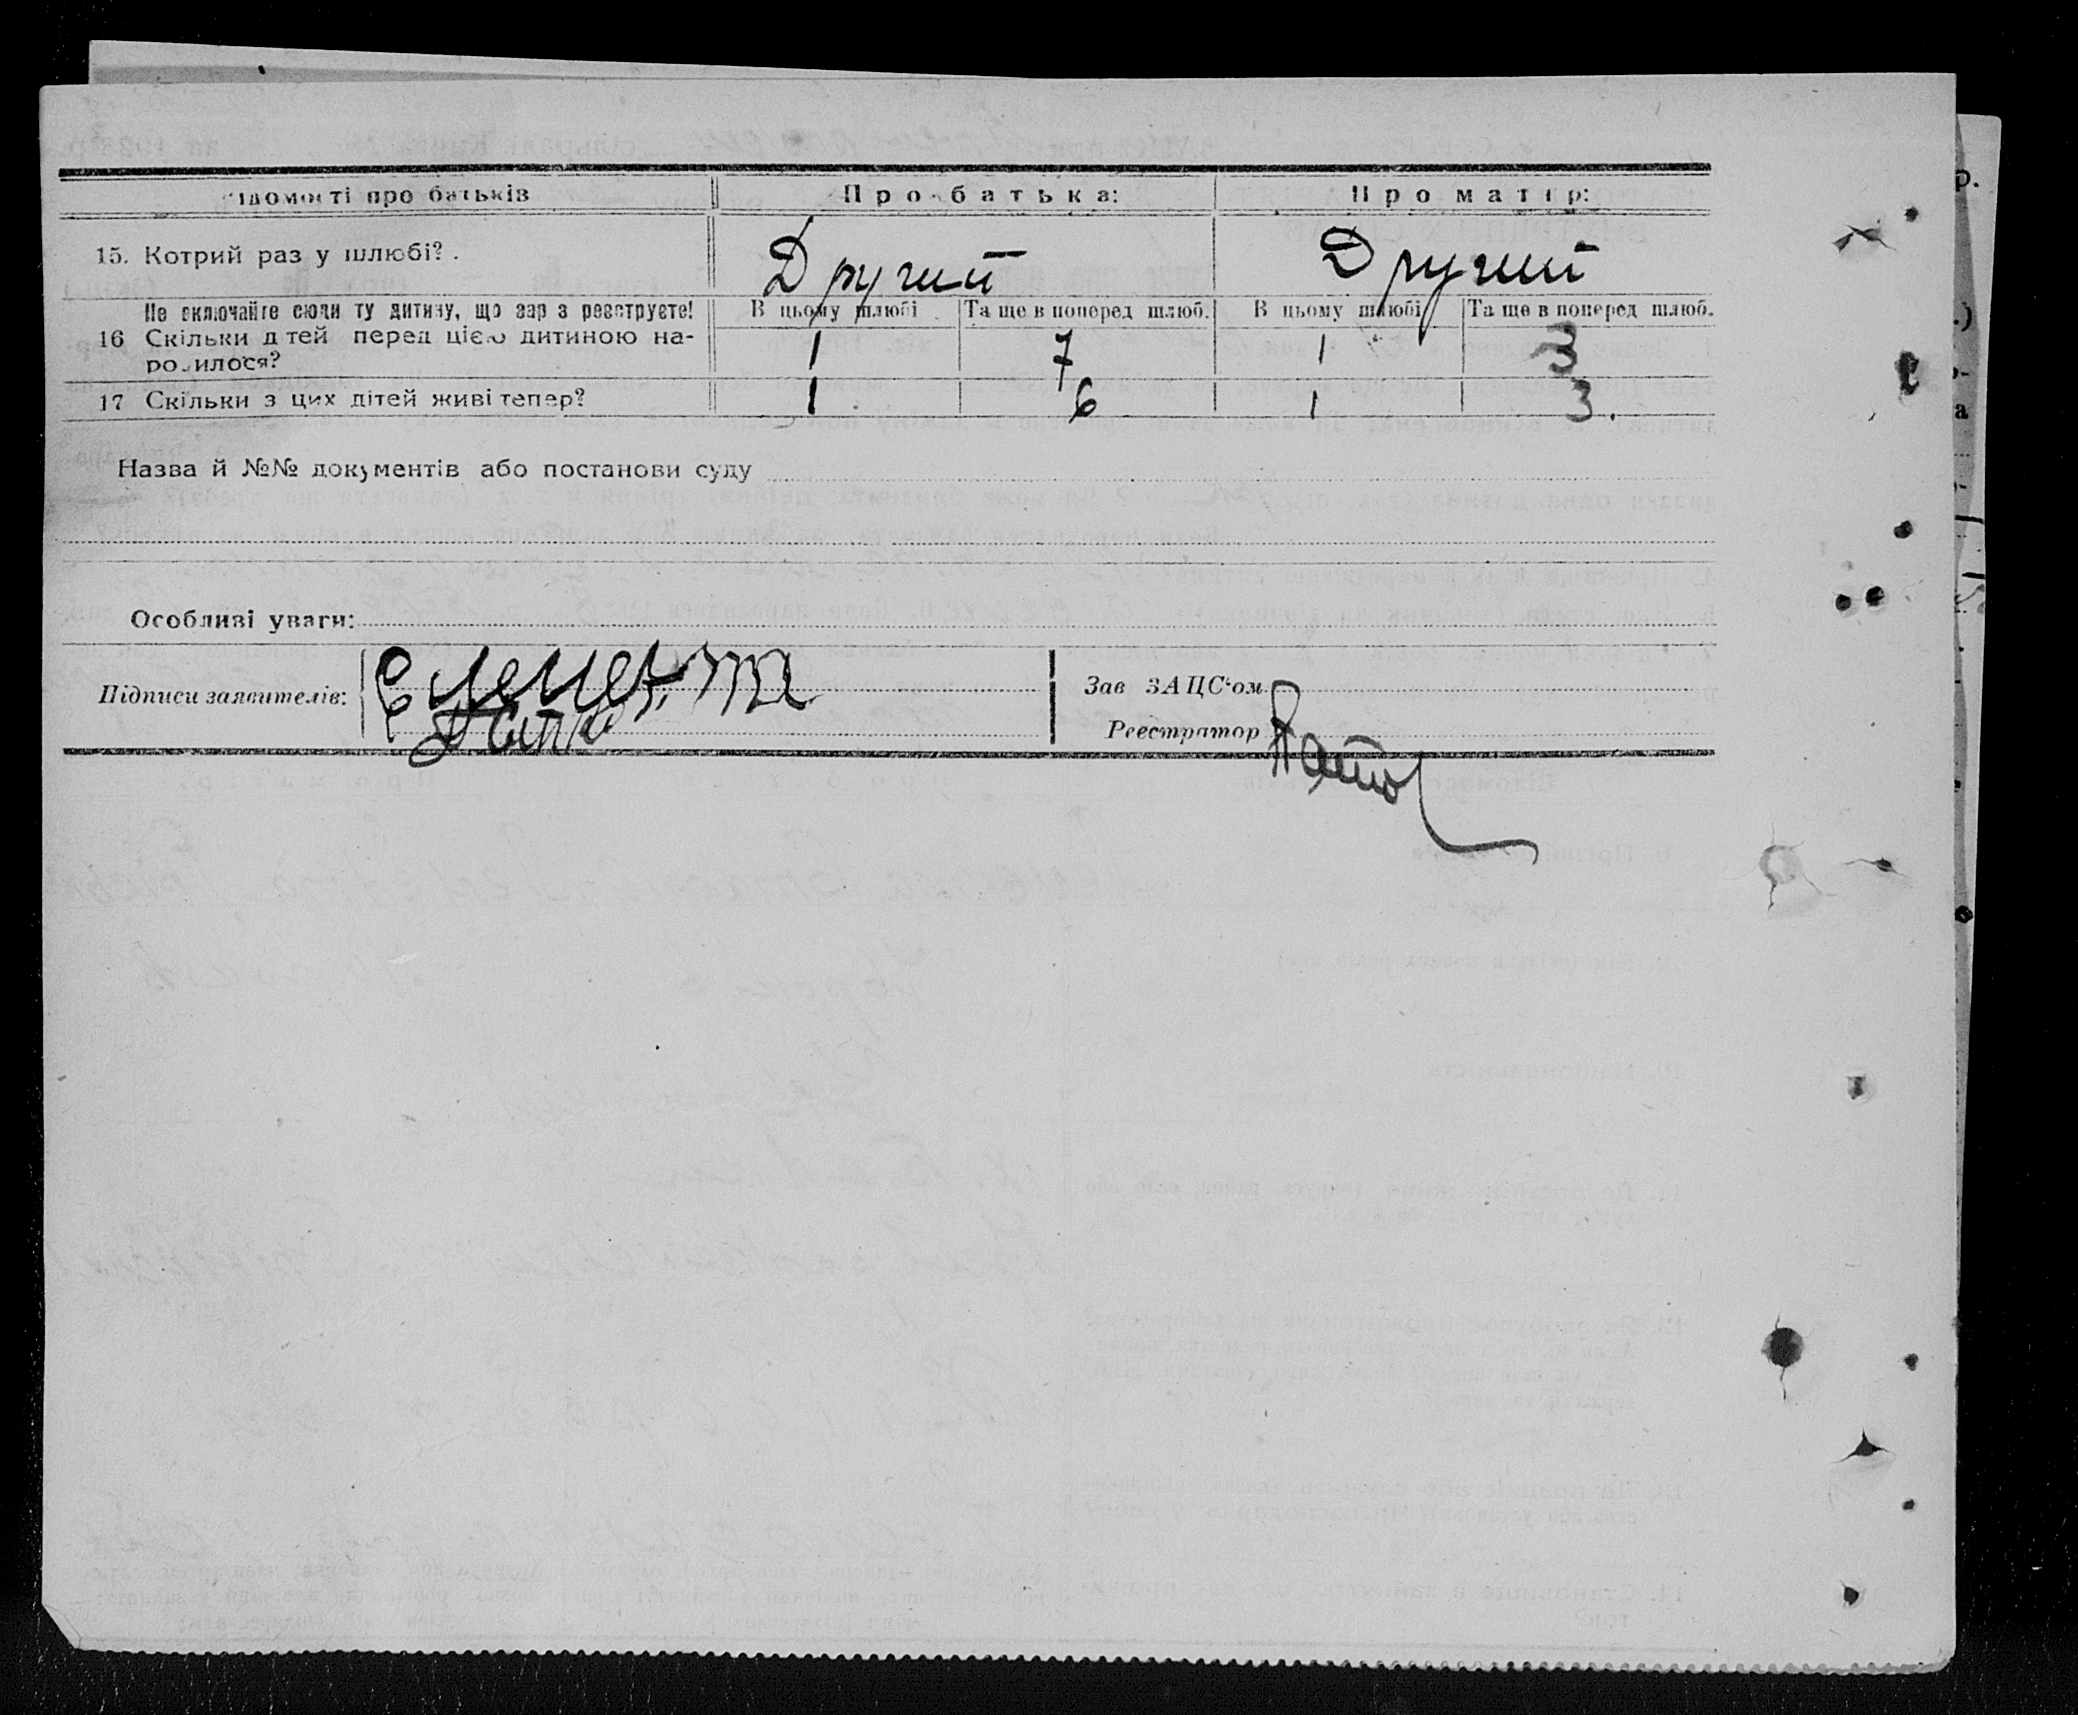 Відомості про батьків
Про батька:
Про матір:
15. Котрий раз у шлюбі?.
Другий
Другий
Не включайте сюди ту дитину, що зараз реєструєте!
В цьому шлюбі
Та ще в поперед шлюб.
В цьому шлюбі
Та ще в поперед шлюб.
16 Скільки дітей перед цією дитиною на-
родилося?
1
7
1
3
17 Скільки з цих дітей живі тепер?
1
6
1
3.
Назва й №№ документів або постанови суду
Особливі уваги:
Підписи заявителів:
Зав ЗАЦС'ом
Реєстратор